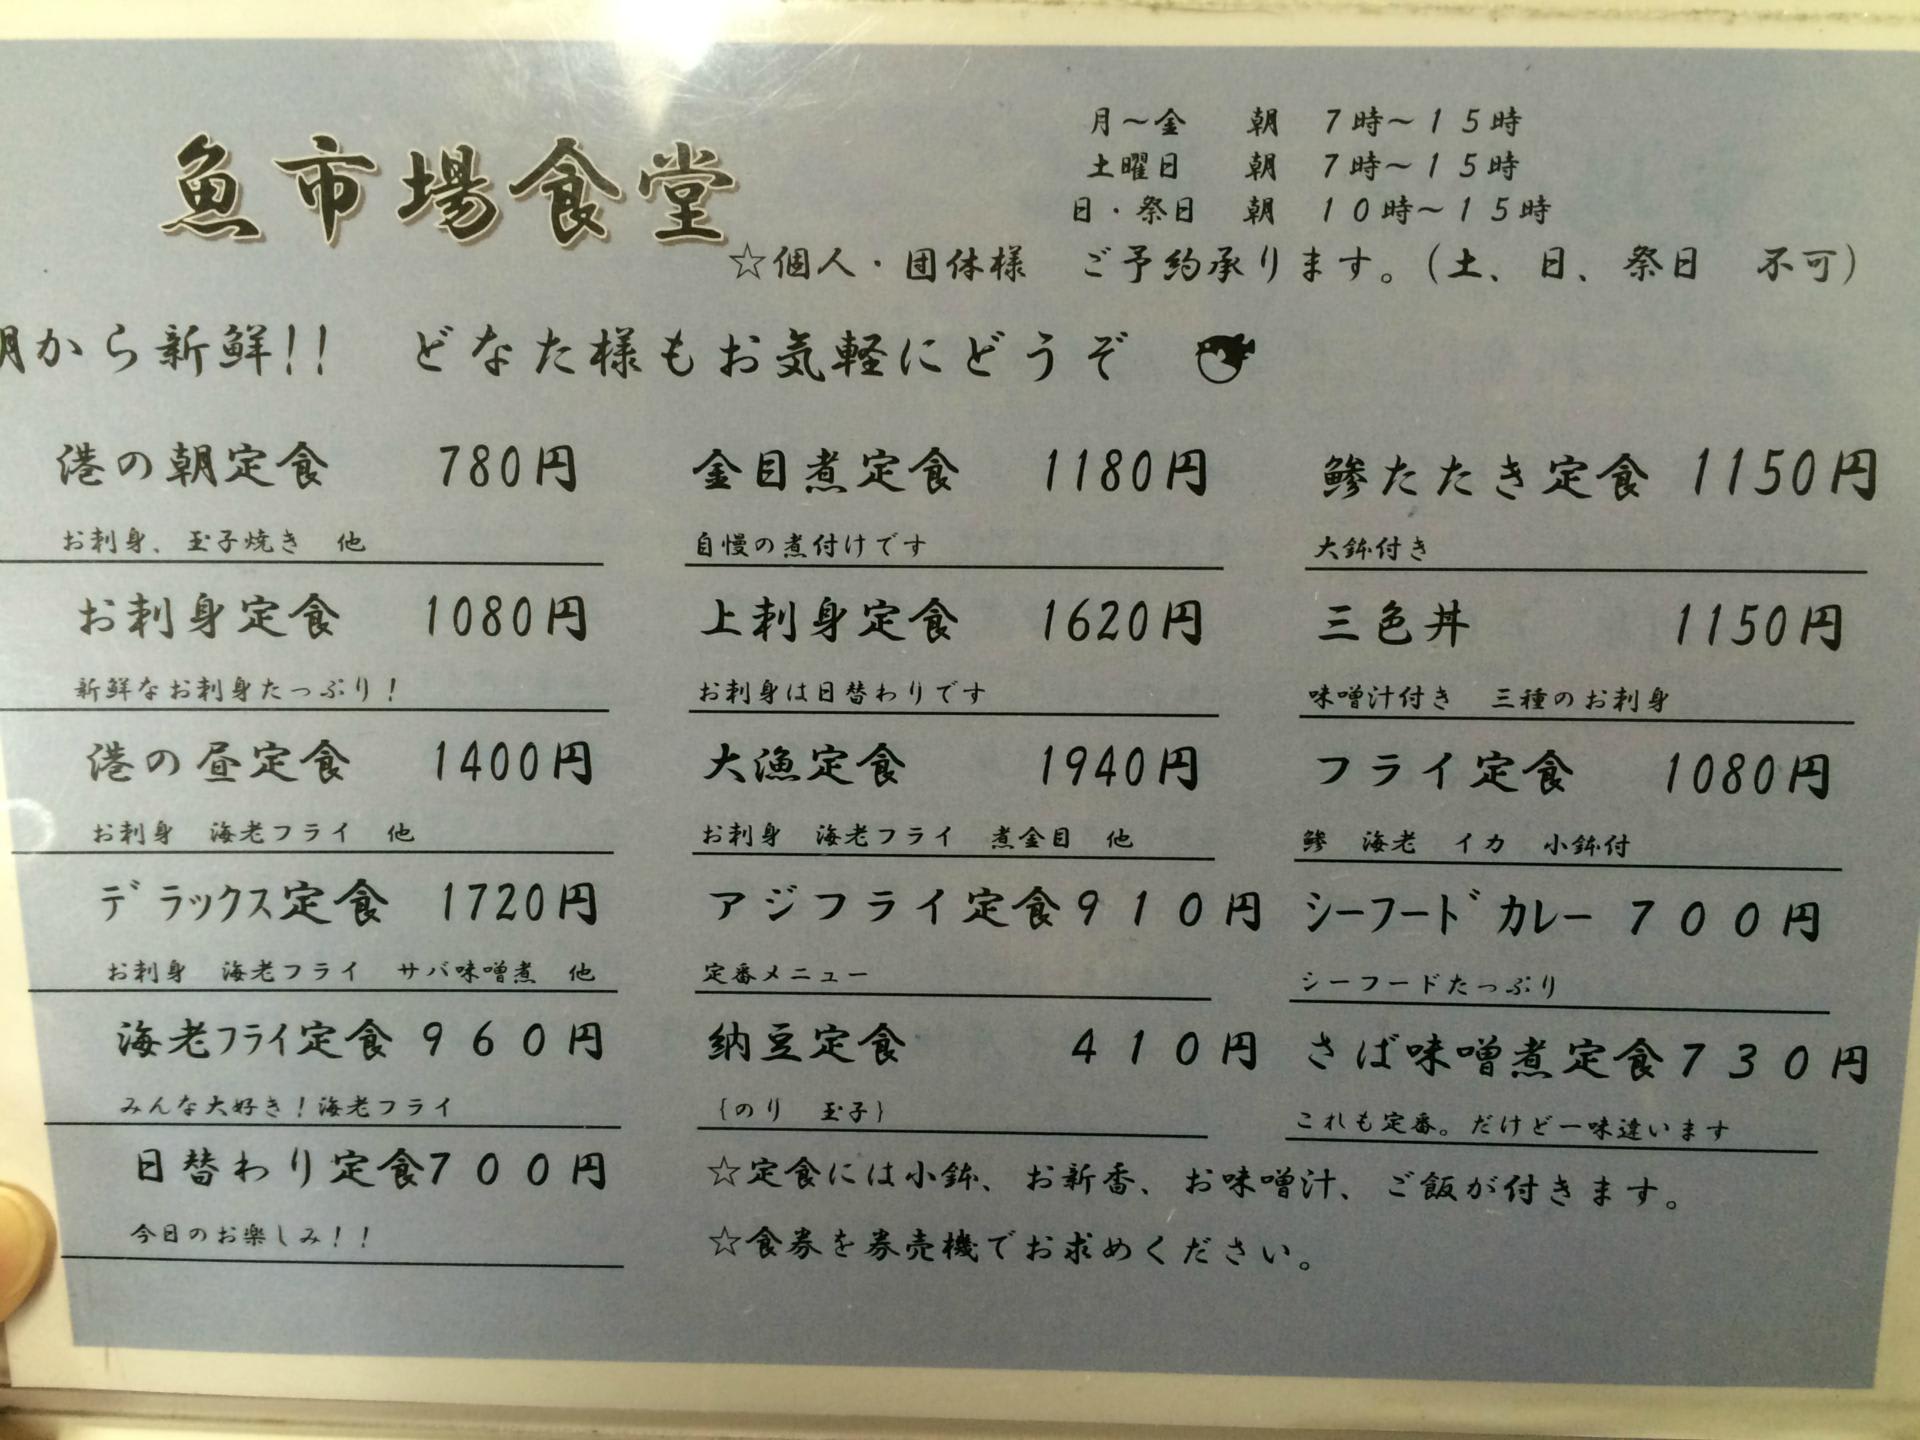 魚市場食堂
月～金　朝　7時～15時
土曜日　朝　7時～15時
日・祭日　朝　10時～15時
☆個人・団体様　ご予約承ります。(土、日、祭日　不可)
朝から新鮮!!　どなた様もお気軽にどうぞ
港の朝定食　780円
お刺身、玉子焼き　他
お刺身定食　1080円
新鮮なお刺身たっぷり！
港の昼定食　1400円
お刺身　海老フライ　他
デラックス定食　1720円
お刺身　海老フライ　サバ味噌煮　他
海老フライ定食 960円
みんな大好き！海老フライ
日替わり定食700円
今日のお楽しみ！！
金目煮定食　1180円
自慢の煮付けです
上刺身定食　1620円
お刺身は日替わりです
大漁定食　1940円
お刺身　海老フライ　煮金目　他
アジフライ定食910円
定番メニュー
納豆定食　410円
{のり　玉子}
鯵たたき定食 1150円
大鉢付き
三色丼　1150円
味噌汁付き　三種のお刺身
フライ定食　1080円
鯵　海老　イカ　小鉢付
シーフードカレー 700円
シーフードたっぷり
さば味噌煮定食730円
これも定番。だけど一味違います
☆定食には小鉢、お新香、お味噌汁、ご飯が付きます。
☆食券を券売機でお求めください。